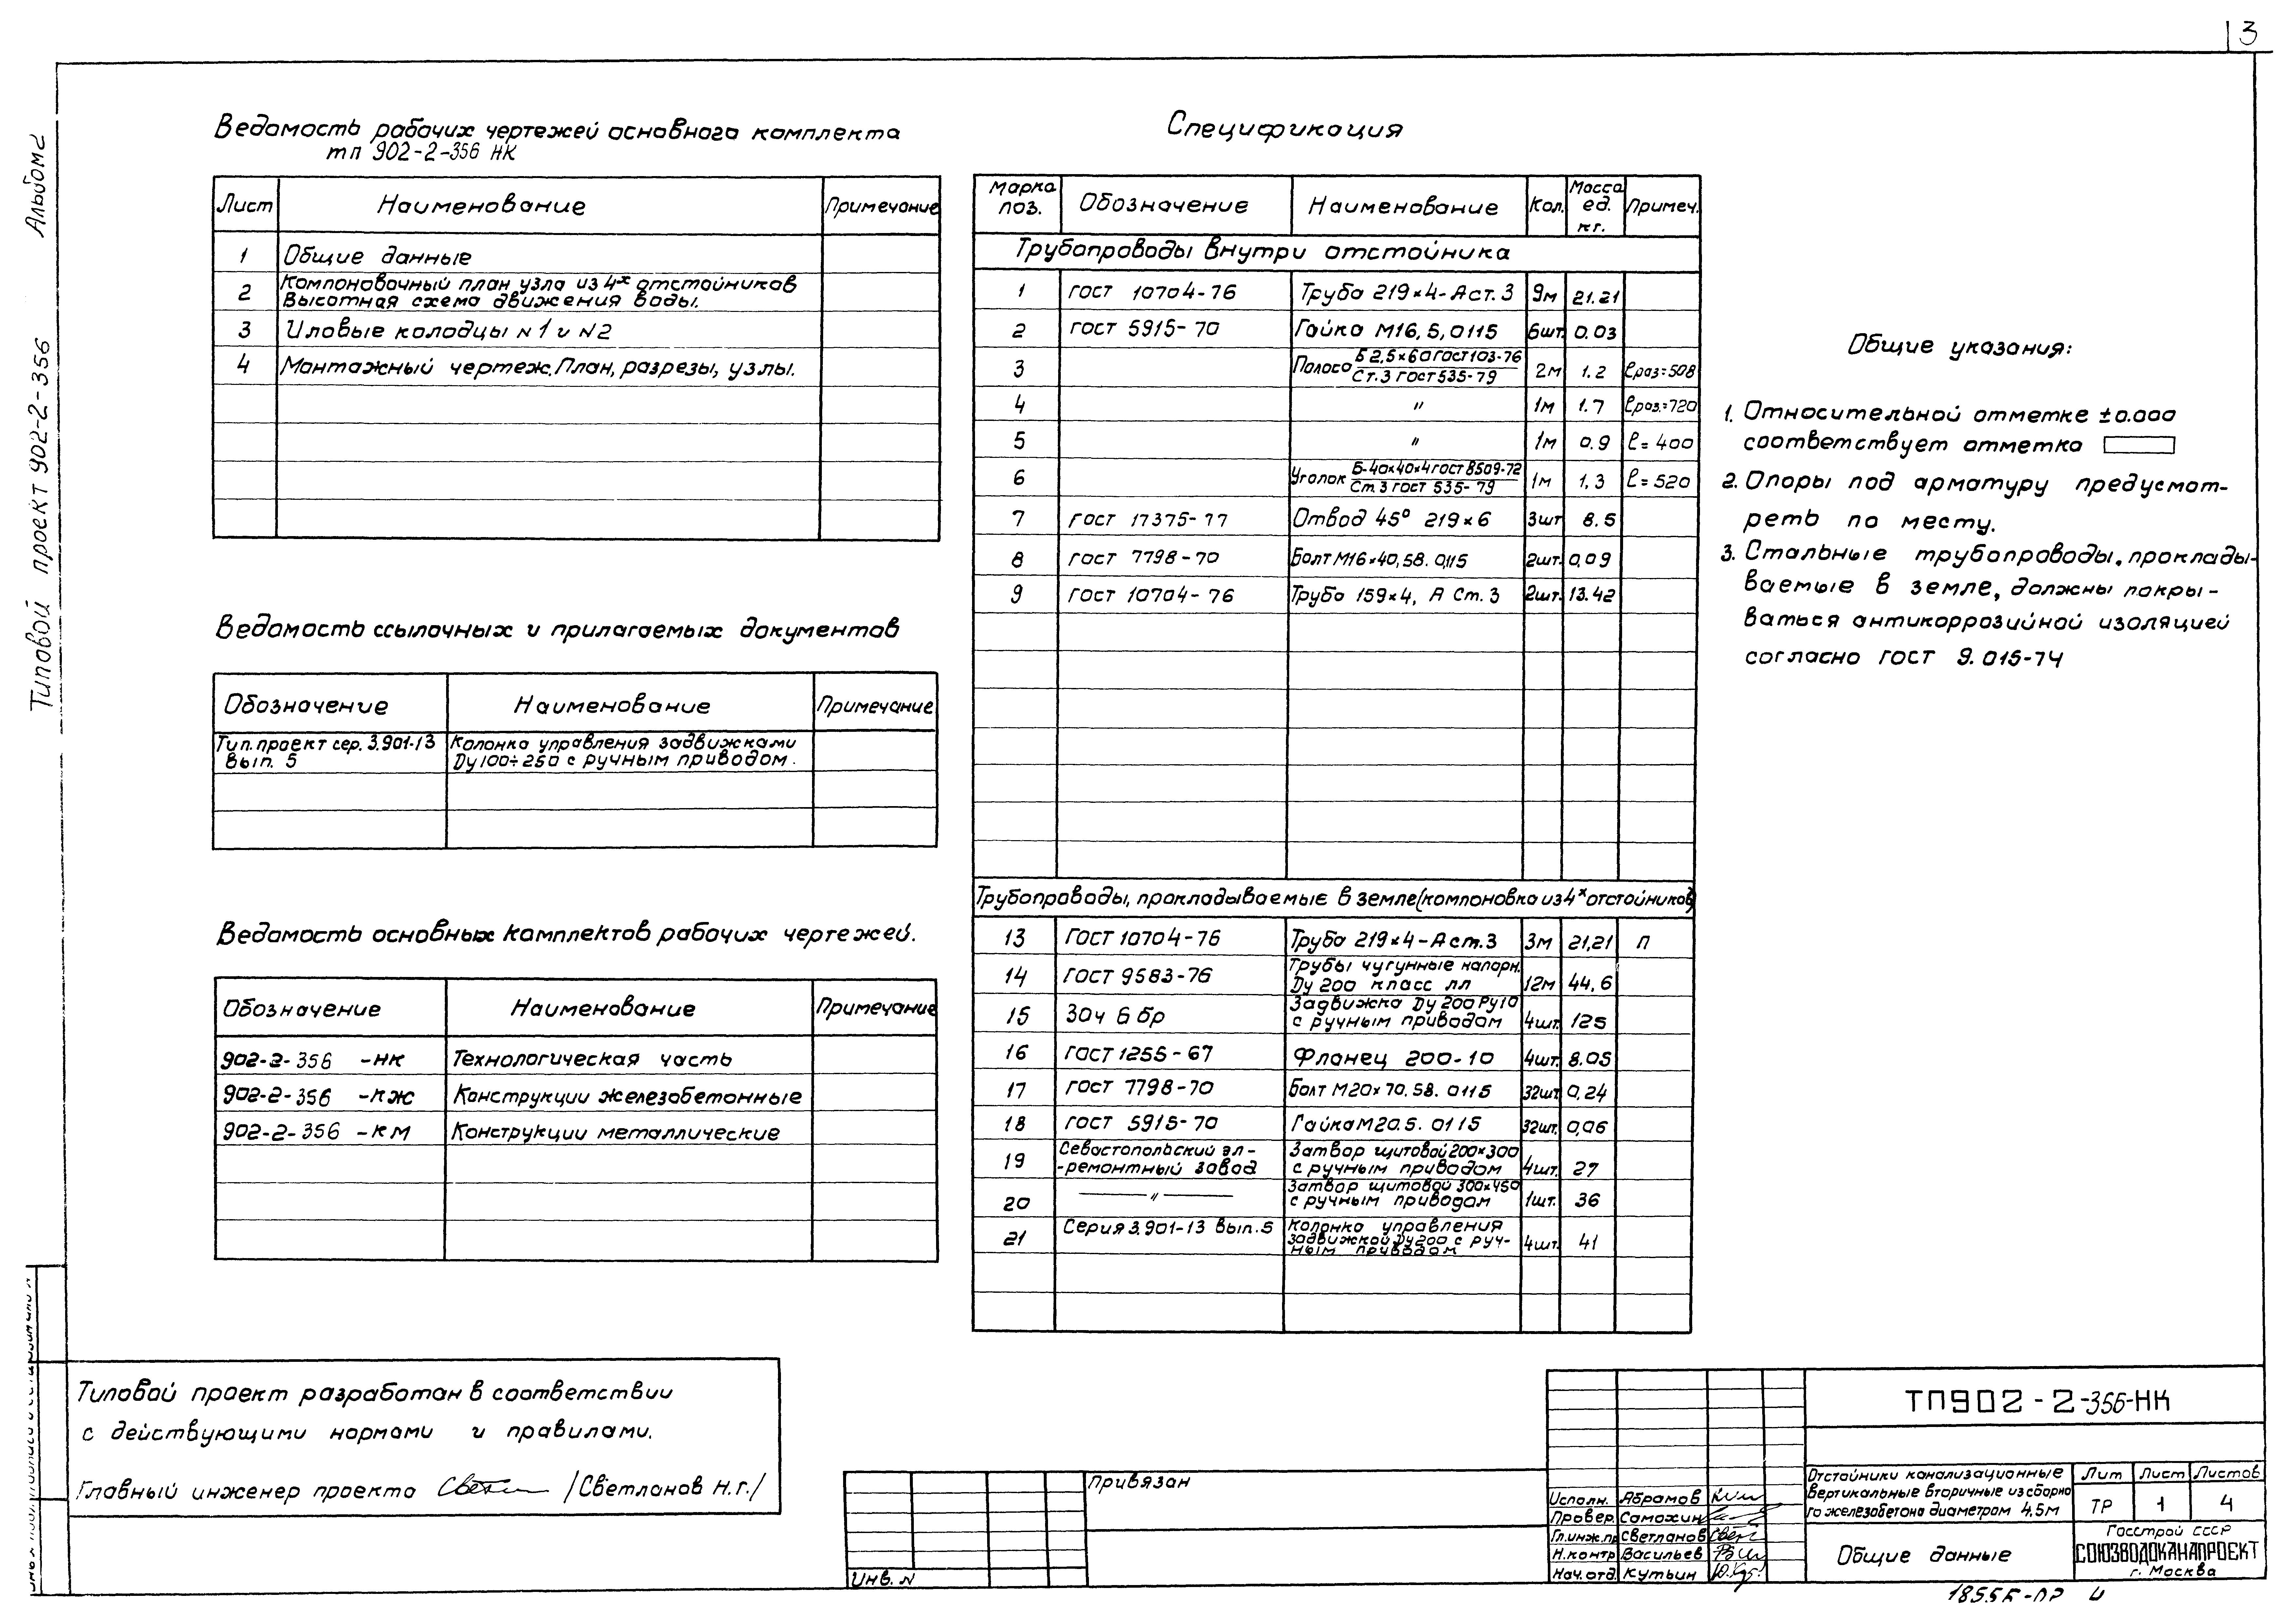 3
Альбом 2
Типовой проект 902-2-356
Ведомость рабочих чертежей основного комплекта
тп 902-2-356 НК
Лист Наименование Примечание
1 Общие данные
2 Компоновочный план узла из 4х отстойников
Высотная схема движения воды.
3 Иловые колодцы N1 и N2
4 Монтажный чертеж. План, разрезы, узлы.
Ведомость ссылочных и прилагаемых документов
Обозначение Наименование Примечание
Тип. проект сер. 3.901-13 Колонка управления задвижками
Вып. 5 Ду 100÷250 с ручным приводом.
Ведомость основных комплектов рабочих чертежей.
Обозначение Наименование Примечание
902-2-356 -НК Технологическая часть
902-2-356 -КЖ Конструкции железобетонные
902-2-356 -КМ Конструкции металлические
Типовой проект разработан в соответствии
с действующими нормами и правилами.
Главный инженер проекта /Светланов Н.Г./
Спецификация
Марка поз. Обозначение Наименование Кол. Масса ед. кг. Примеч.
Трубопроводы внутри отстойника
1 ГОСТ 10704-76 Труба 219×4-А ст. 3 9м 21.21
2 ГОСТ 5915-70 Гайка М16, 5, 0115 6шт. 0.03
3 Полоса Б 2,5×60 ГОСТ 103-76 / Ст. 3 ГОСТ 535-79 2м 1.2 ℓраз=508
4 " 1м 1.7 ℓраз.=720
5 " 1м 0.9 ℓ=400
6 Уголок Б-40×40×4 ГОСТ 8509-72 / Ст. 3 ГОСТ 535-79 1м 1,3 ℓ=520
7 ГОСТ 17375-77 Отвод 45° 219×6 3шт 8.5
8 ГОСТ 7798-70 Болт М16×40,58. 0115 2шт. 0,09
9 ГОСТ 10704-76 Труба 159×4, А Ст. 3 2шт. 13.42
Трубопроводы, прокладываемые в земле (компоновка из 4х отстойников)
13 ГОСТ 10704-76 Труба 219×4-А ст. 3 3м 21,21 П
14 ГОСТ 9583-76 Трубы чугунные напорн.
Ду 200 класс ЛЛ 12м 44,6
15 30ч 6 бр Задвижка Ду 200 Ру10
с ручным приводом 4шт. 125
16 ГОСТ 1255-67 Фланец 200-10 4шт. 8.05
17 ГОСТ 7798-70 Болт М20×70.58. 0115 32шт 0,24
18 ГОСТ 5915-70 Гайка М20.5. 0115 32шт. 0,06
19 Севастопольский эл- Затвор щитовой 200×300
-ремонтный завод с ручным приводом 4шт. 27
20 " Затвор щитовой 300×450
с ручным приводом 1шт. 36
21 Серия 3.901-13 вып. 5 Колонка управления
задвижкой Ду 200 с руч-
ным приводом 4шт. 41
Общие указания:
1. Относительной отметке ±0.000
соответствует отметка
2. Опоры под арматуру предусмот-
реть по месту.
3. Стальные трубопроводы, прокпады-
ваемые в земле, должны покры-
ваться антикоррозийной изоляцией
согласно ГОСТ 9.015-74
Привязан
Инв. N
Исполн. Абрамов
Провер. Самохин
Гл.инж.пр Светланов
Н.контр Васильев
Нач.отд. Кутьин
ТП902-2-356-НК
Отстойники канализационные
вертикальные вторичные из сборно
го железобетона диаметром 4,5м
Лит Лист Листов
ТР 1 4
Общие данные
Госстрой СССР
СОЮЗВОДОКАНАЛПРОЕКТ
г. Москва